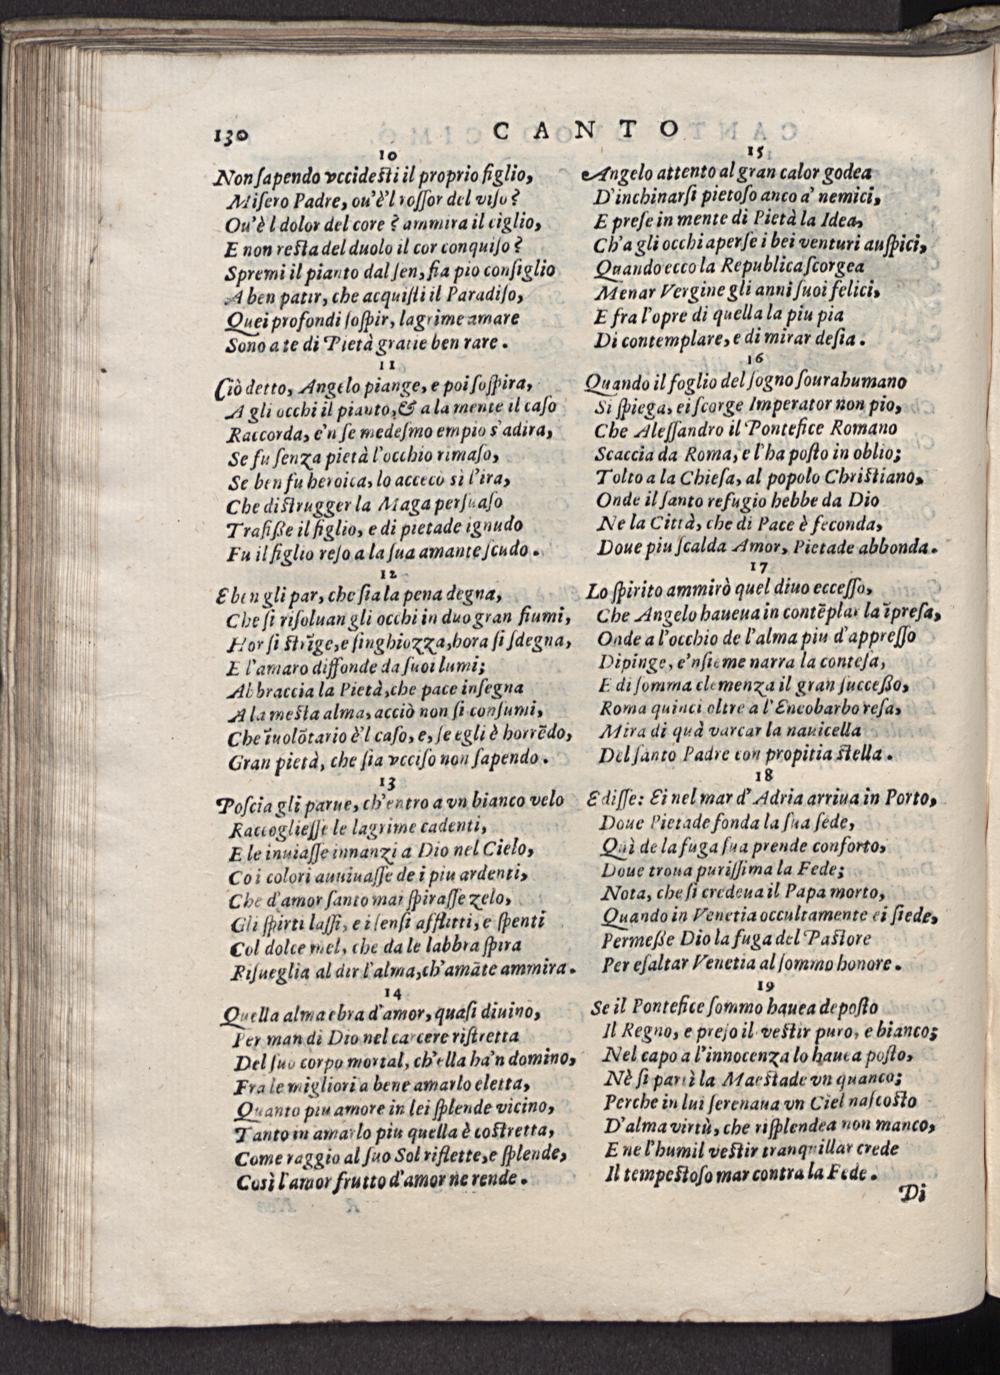 130
CANTO
10
Non ſapendo vccideſti il proprio figlio,
Miſero Padre, ou'è'l roſſor del viſo?
Ou'è l dolor del core? ammira il ciglio,
E non reſta del duolo il cor conquiſo?
Spremi il pianto dal ſen, fia pio conſiglio
A ben patir, che acquiſti il Paradiſo,
Quei profondi ſoſpir, lagrime amare
Sono a te di Pietà gratie ben rare.
11
Ciò detto, Angelo piange, e poi ſoſpira,
A gli occhi il pianto, & a la mente il caſo
Raccorda, e'n ſe medeſmo empio s'adira,
Se fu ſenza pietà l'occhio rimaſo,
Se ben fu heroica, lo accecò sì l'ira,
Che diſtrugger la Maga perſuaſo
Trafiſſe il figlio, e di pietade ignudo
Fu il figlio reſo a la ſua amante ſcudo.
12
E ben gli par, che ſia la pena degna,
Che ſi riſoluan gli occhi in duo gran fiumi,
Hor ſi ſtrīge, e ſinghiozza, hora ſi ſdegna,
E l'amaro diffonde da ſuoi lumi;
Abbraccia la Pietà, che pace inſegna
A la meſta alma, acciò non ſi conſumi,
Che īuolōtario è'l caſo, e, ſe egli è horrēdo,
Gran pietà, che ſia vcciſo non ſapendo.
13
Poſcia gli parue, ch'entro a vn bianco velo
Raccoglieſſe le lagrime cadenti,
E le inuiaſſe innanzi a Dio nel Cielo,
Co i colori auuiuaſſe de i piu ardenti,
Che d'amor ſanto mai ſpiraſſe zelo,
Gli ſpirti laſſi, e i ſenſi afflitti, e ſpenti
Col dolce mel, che da le labbra ſpira
Riſueglia al dir l'alma, ch'amāte ammira.
14
Quella alma ebra d'amor, quaſi diuino,
Per man di Dio nel carcere riſtretta
Del ſuo corpo mortal, ch'ella ha'n domino,
Fra le migliori a bene amarlo eletta,
Quanto piu amore in lei ſplende vicino,
Tanto in amarlo piu quella è coſtretta,
Come raggio al ſuo Sol riflette, e ſplende,
Così l'amor frutto d'amor ne rende.
15
Angelo attento al gran calor godea
D'inchinarſi pietoſo anco a' nemici,
E preſe in mente di Pietà la Idea,
Ch'a gli occhi aperſe i bei venturi auſpici,
Quando ecco la Republica ſcorgea
Menar Vergine gli anni ſuoi felici,
E fra l'opre di quella la piu pia
Di contemplare, e di mirar deſia.
16
Quando il foglio del ſogno ſourahumano
Si ſpiega, ei ſcorge Imperator non pio,
Che Aleſſandro il Pontefice Romano
Scaccia da Roma, e l'ha poſto in oblio;
Tolto a la Chieſa, al popolo Chriſtiano,
Onde il ſanto refugio hebbe da Dio
Ne la Città, che di Pace è feconda,
Doue piu ſcalda Amor, Pietade abbonda.
17
Lo ſpirito ammirò quel diuo ecceſſo,
Che Angelo haueua in contēplar la īpreſa,
Onde a l'occhio de l'alma piu d'appreſſo
Dipinge, e'nſieme narra la conteſa,
E di ſomma clemenza il gran ſucceſſo,
Roma quinci oltre a l'Eneobarbo reſa,
Mira di quà varcar la nauicella
Del ſanto Padre con propitia ſtella.
18
E diſſe: Ei nel mar d'Adria arriua in Porto,
Doue Pietade fonda la ſua ſede,
Quì de la fuga ſua prende conforto,
Doue troua puriſſima la Fede;
Nota, che ſi credeua il Papa morto,
Quando in Venetia occultamente ei ſiede,
Permeſſe Dio la fuga del Paſtore
Per eſaltar Venetia al ſommo honore.
19
Se il Pontefice ſommo hauea depoſto
Il Regno, e preſo il veſtir puro, e bianco;
Nel capo a l'innocenza lo hauea poſto,
Nè ſi partì la Maeſtade vn quanco;
Perche in lui ſerenaua vn Ciel naſcoſto
D'alma virtù, che riſplendea non manco,
E ne l'humil veſtir tranquillar crede
Il tempeſtoſo mar contra la Fede.
Di